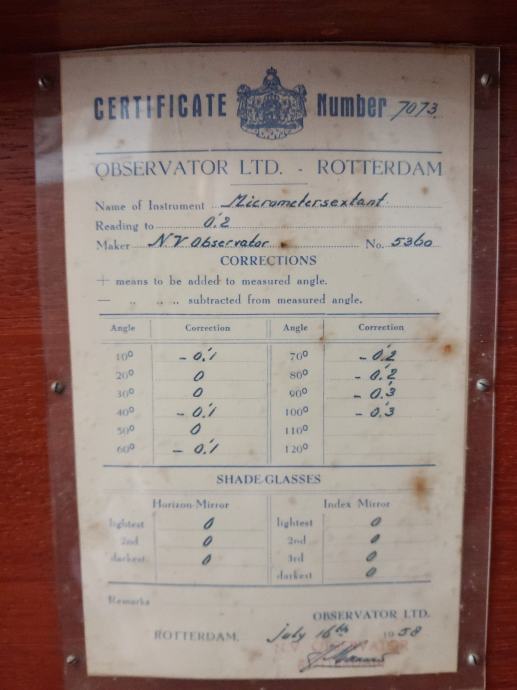 CERTIFICATE Number 7073
OBSERVATOR LTD. - ROTTERDAM
Name of Instrument Micrometersextant
Reading to 0.'2
Maker N V Observator No. 5360
CORRECTIONS
+ means to be added to measured angle.
— „ „ „ subtracted from measured angle.
Angle Correction Angle Correction
10° - 0.'1 70° - 0.'2
20° 0 80° - 0.'2
30° 0 90° - 0.'3
40° - 0.'1 100° - 0.'3
50° 0 110°
60° - 0.'1 120°
SHADE-GLASSES
Horizon-Mirror Index Mirror
lightest 0 lightest 0
2nd 0 2nd 0
darkest 0 3rd 0
darkest 0
Remarks
OBSERVATOR LTD.
ROTTERDAM. July 16th 1958
N.V. OBSERVATOR